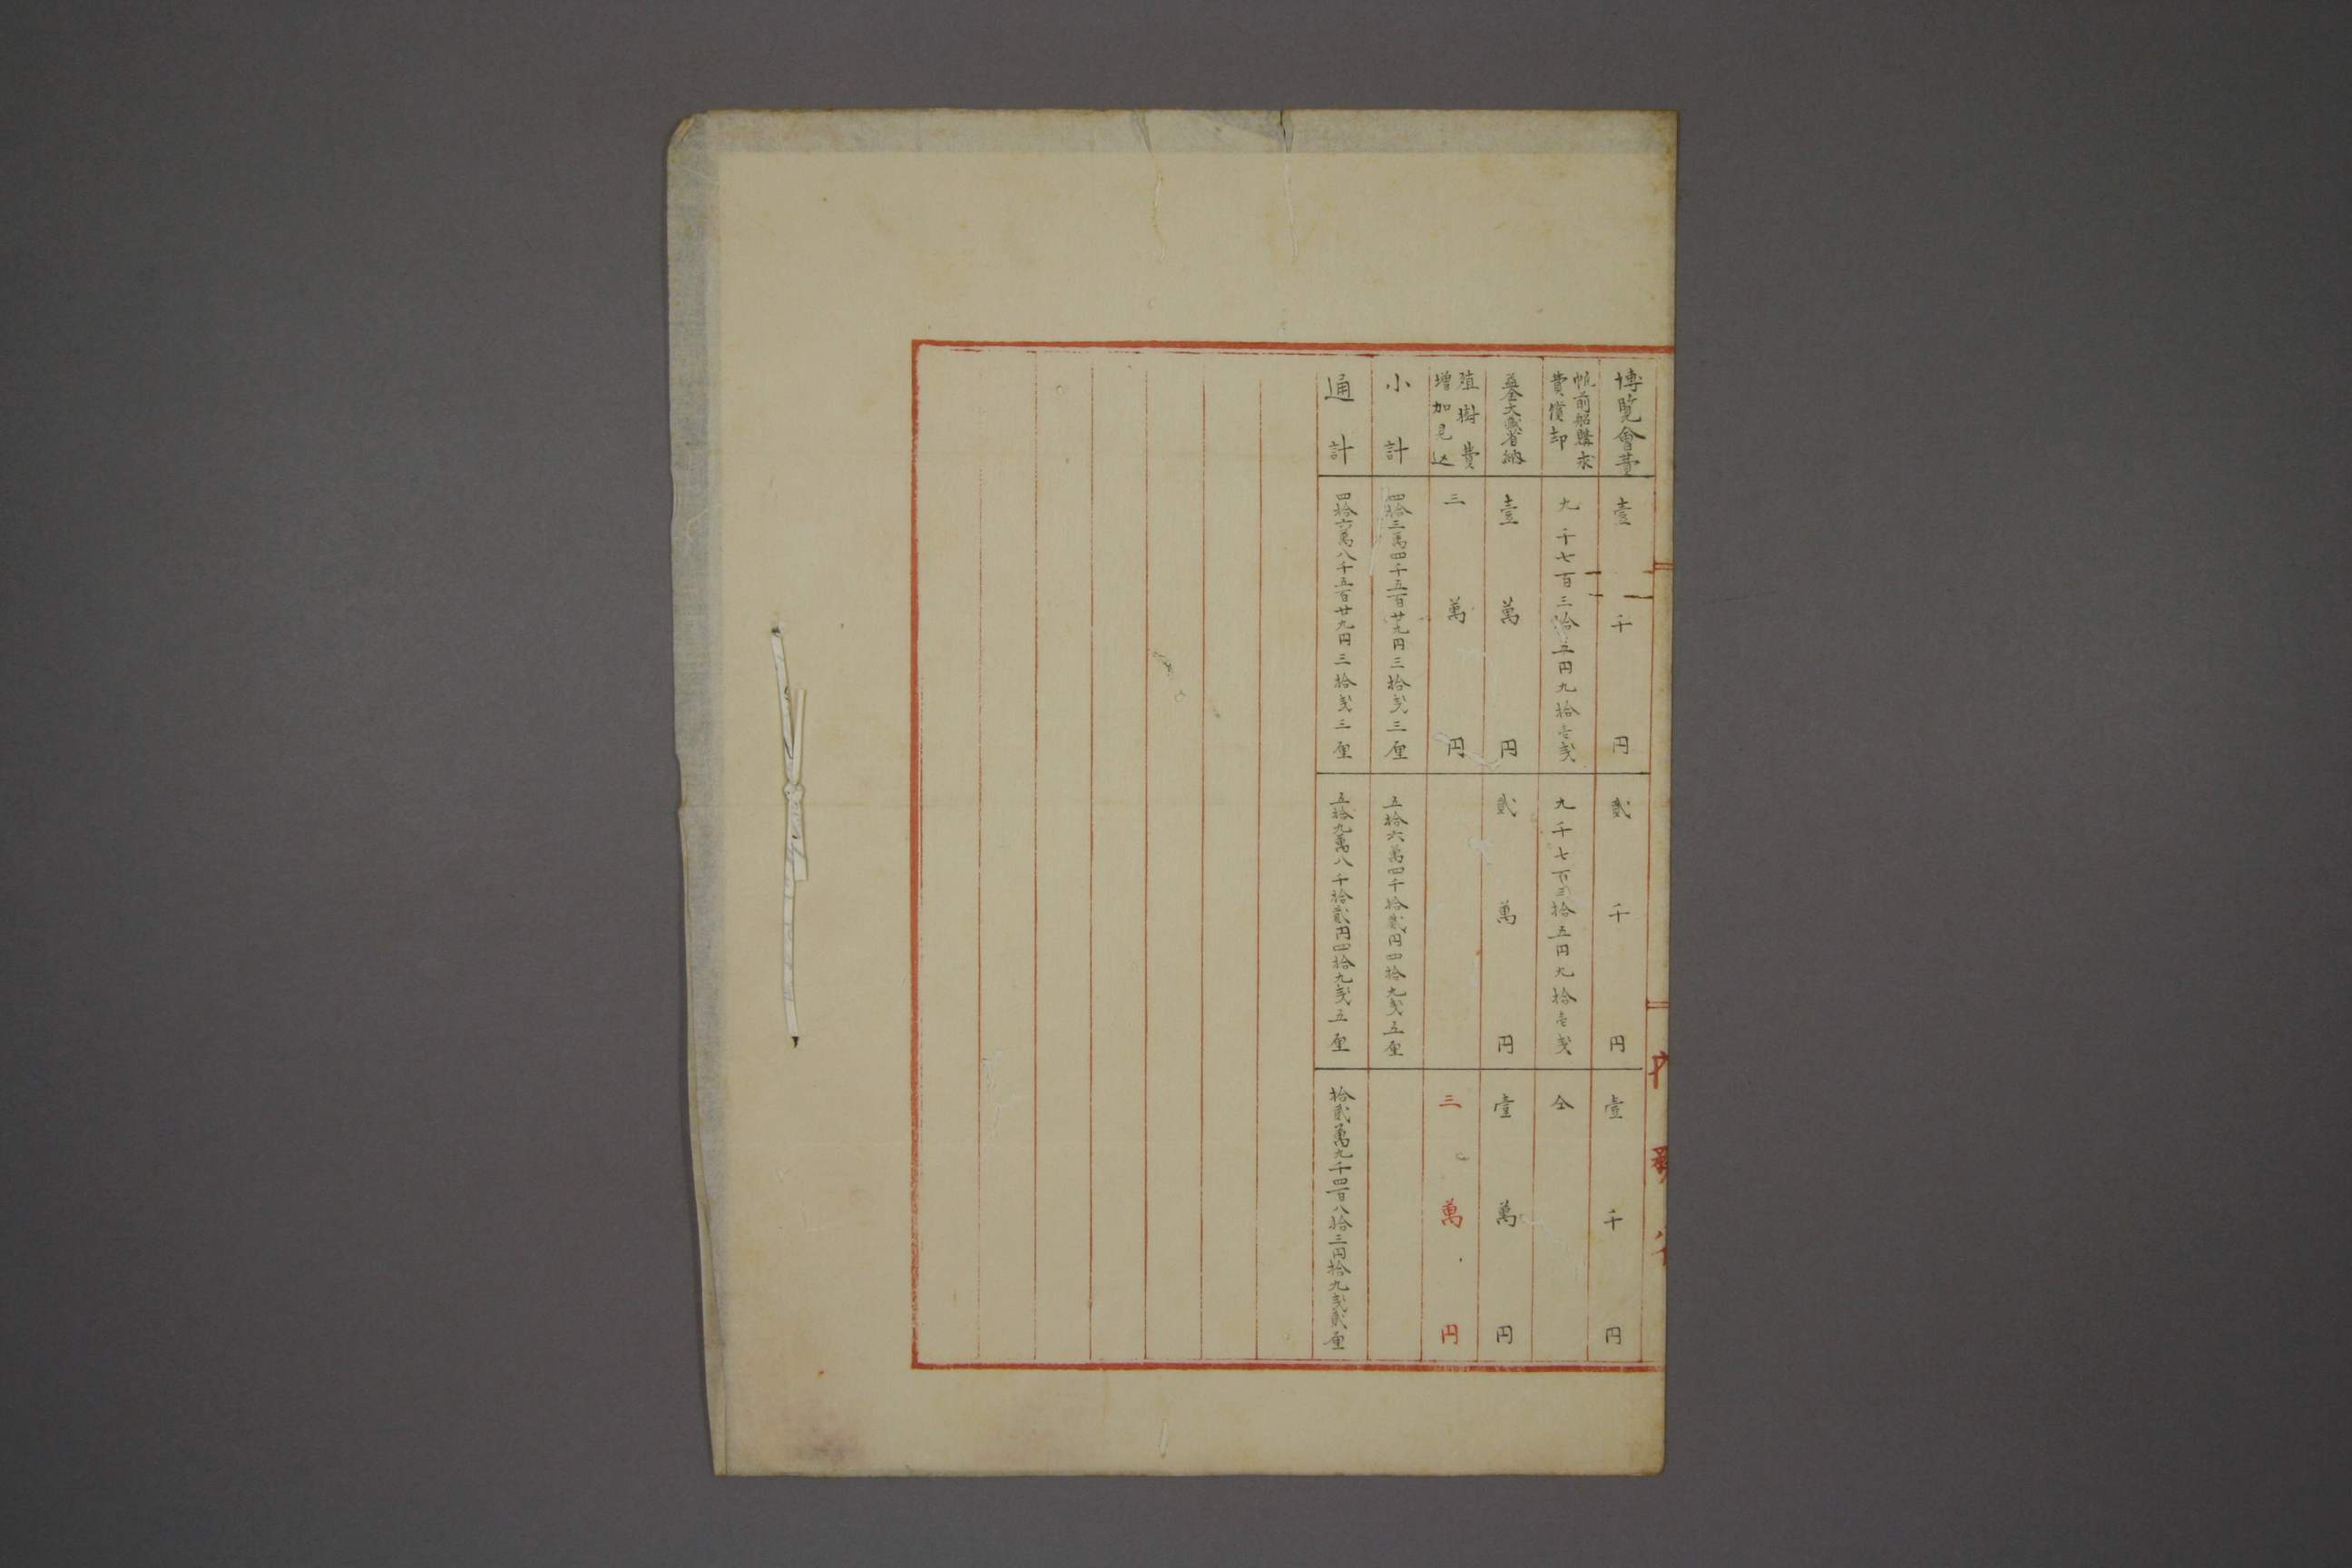 博覧會費
壹千円
貳千円
壹千円
帆前船購求
費償却
九千七百三拾五円九拾壱戔
九千七百三拾五円九拾壱戔
仝
益金大藏省納
壹萬円
貳萬円
壹萬円
殖樹費
増加見込
三萬円
三萬円
小計
四拾三萬四千五百廿九円三拾戔三厘
五拾六萬四千拾貳円四拾九戔五厘
通計
四拾六萬八千五百廿九円三拾戔三厘
五拾九萬八千拾貳円四拾九戔五厘
拾貳萬九千四百八拾三円拾九戔貳厘
内務省